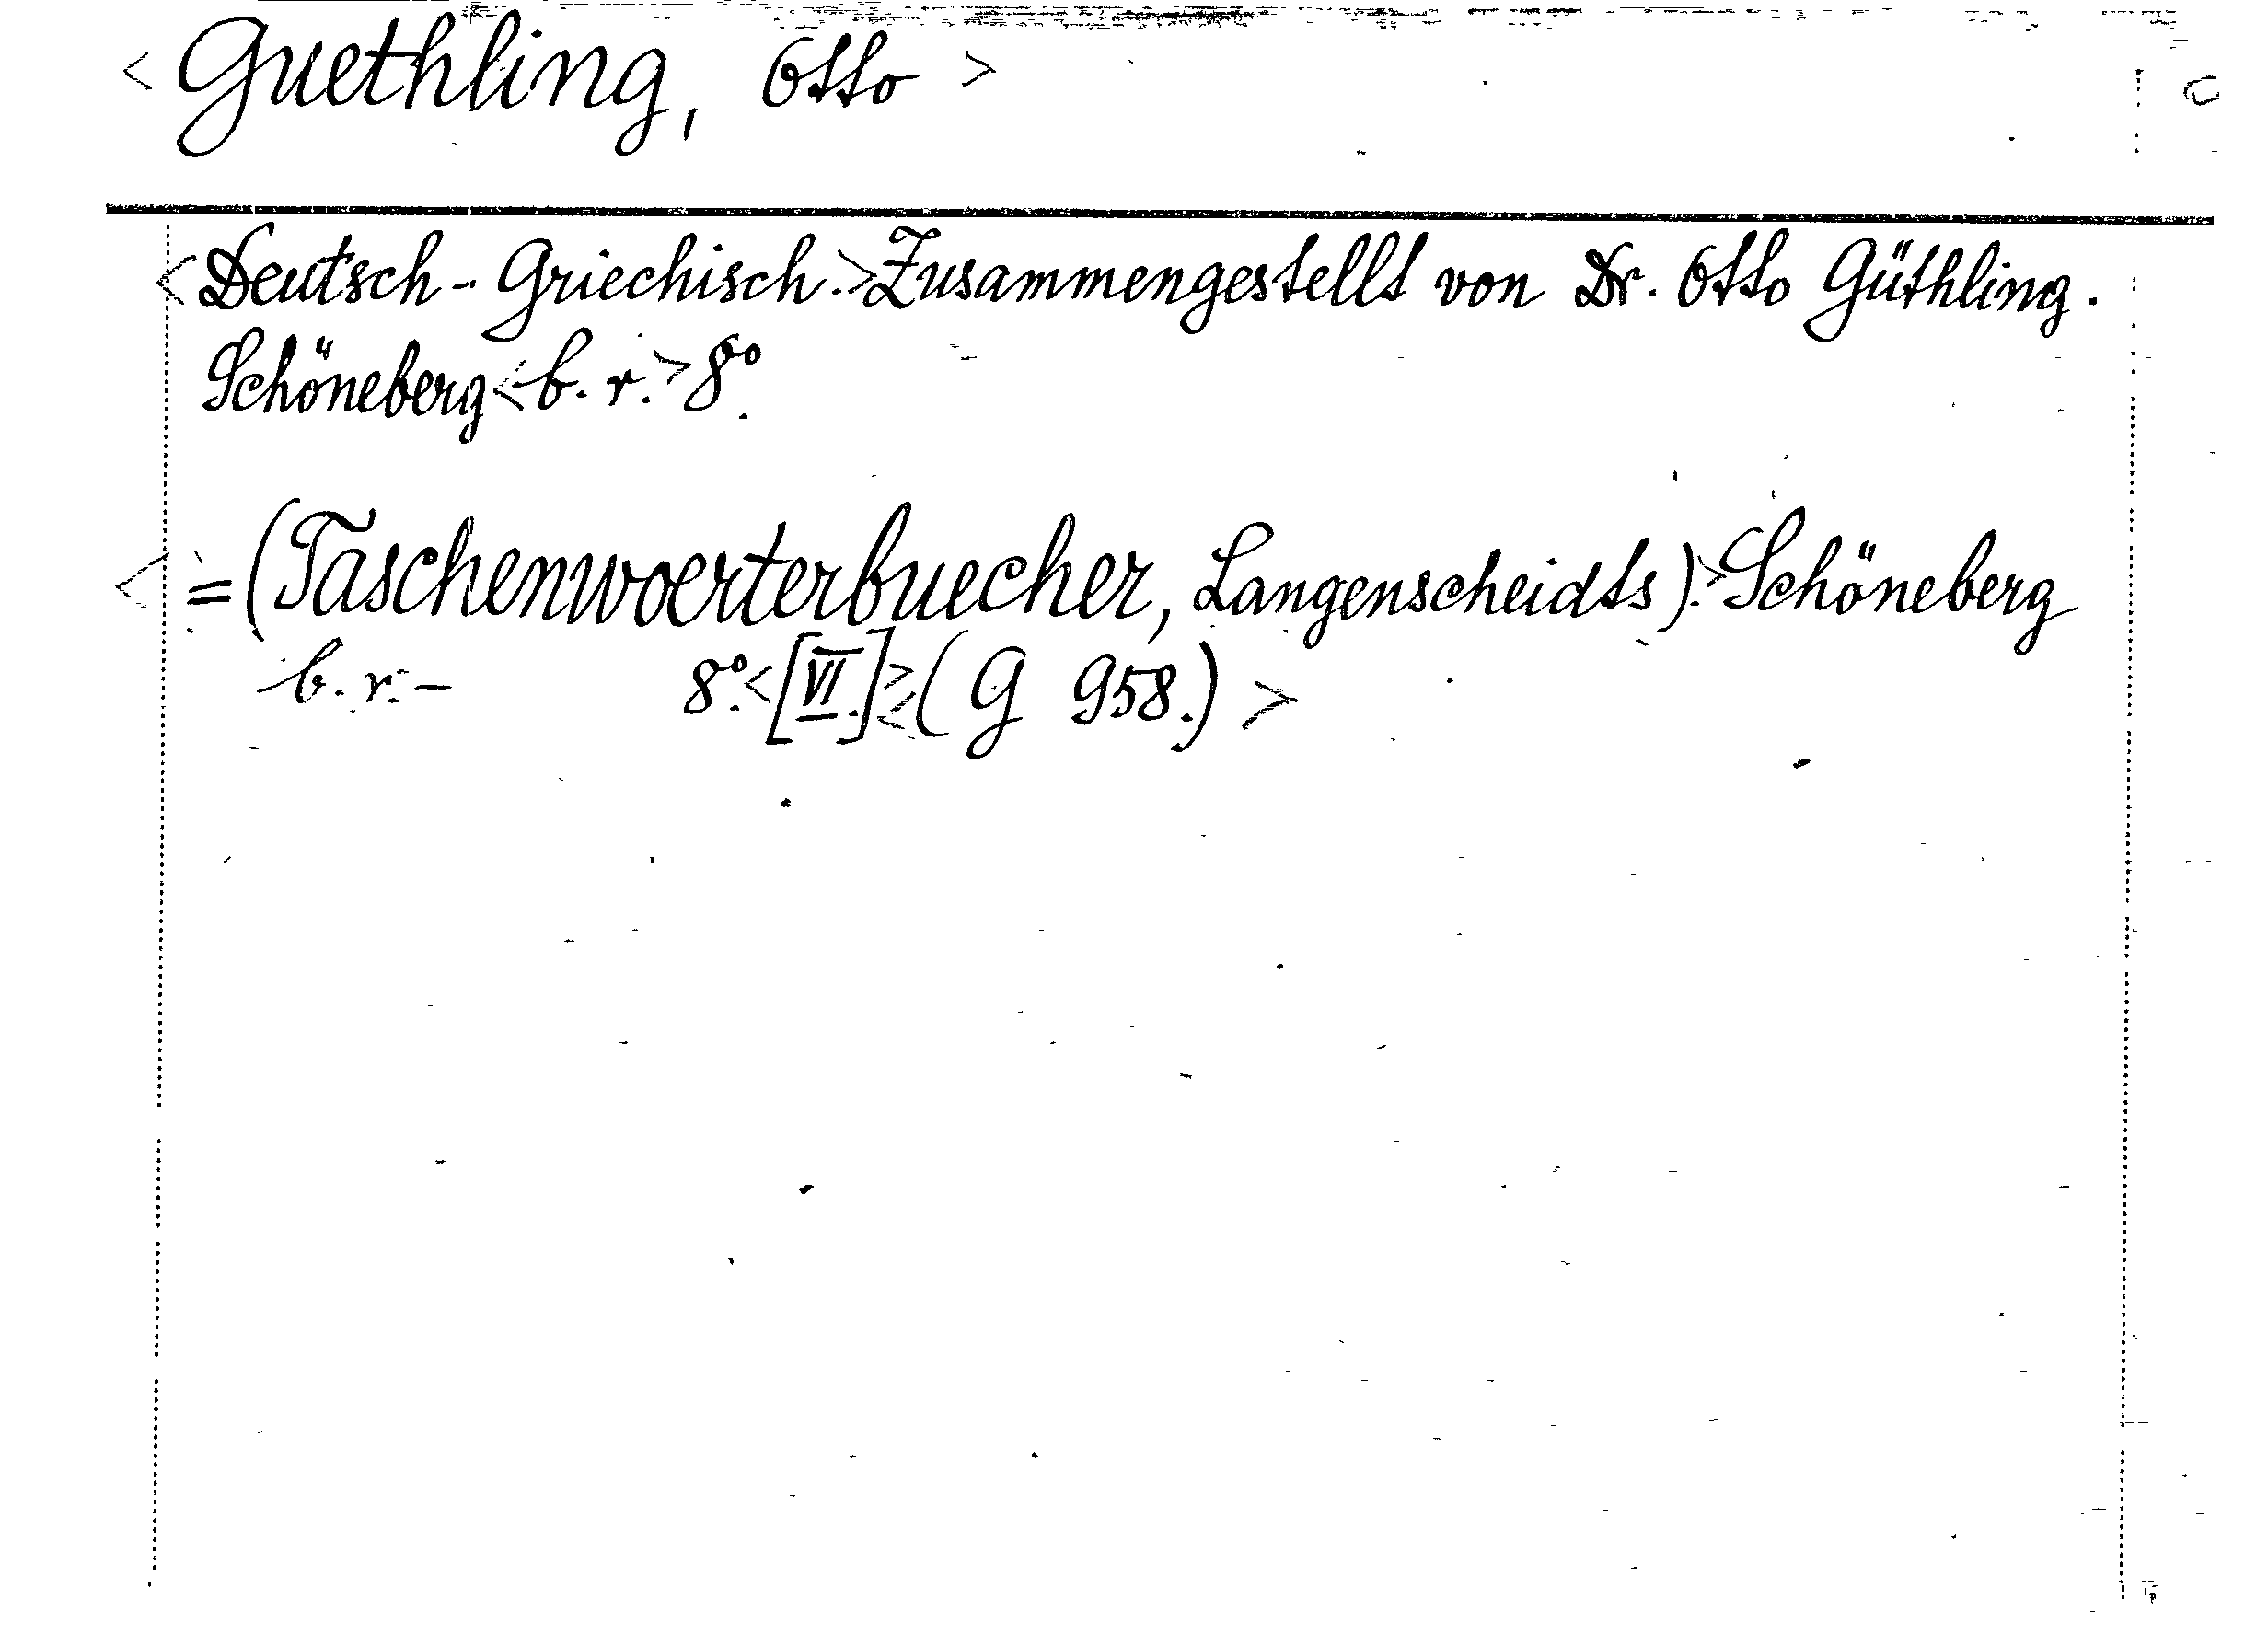 < Guethling, Otto >
<Deutsch-Griechisch.> Zusammengestellt von Dr. Otto Güthling.
Schöneberg <b. r.> 8°.
< = (Taschenwoerterbuecher, Langenscheidts).> Schöneberg
b. r. - 8°. <[VI.]> <(G 958.)>